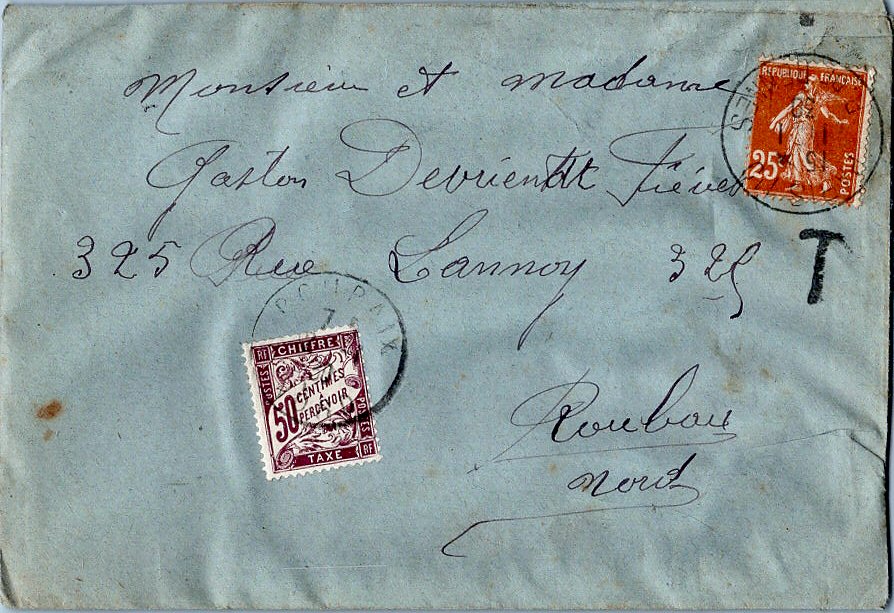 Monsieur et madame
Gaston Devriendt Fiévet
325 Rue Lannoy 325
Roubaix
nord
T
REPUBLIQUE FRANCAISE
25
POSTES
ROUBAIX
RF CHIFFRE
POSTES
50 CENTIMES
A PERCEVOIR
POSTES
TAXE RF